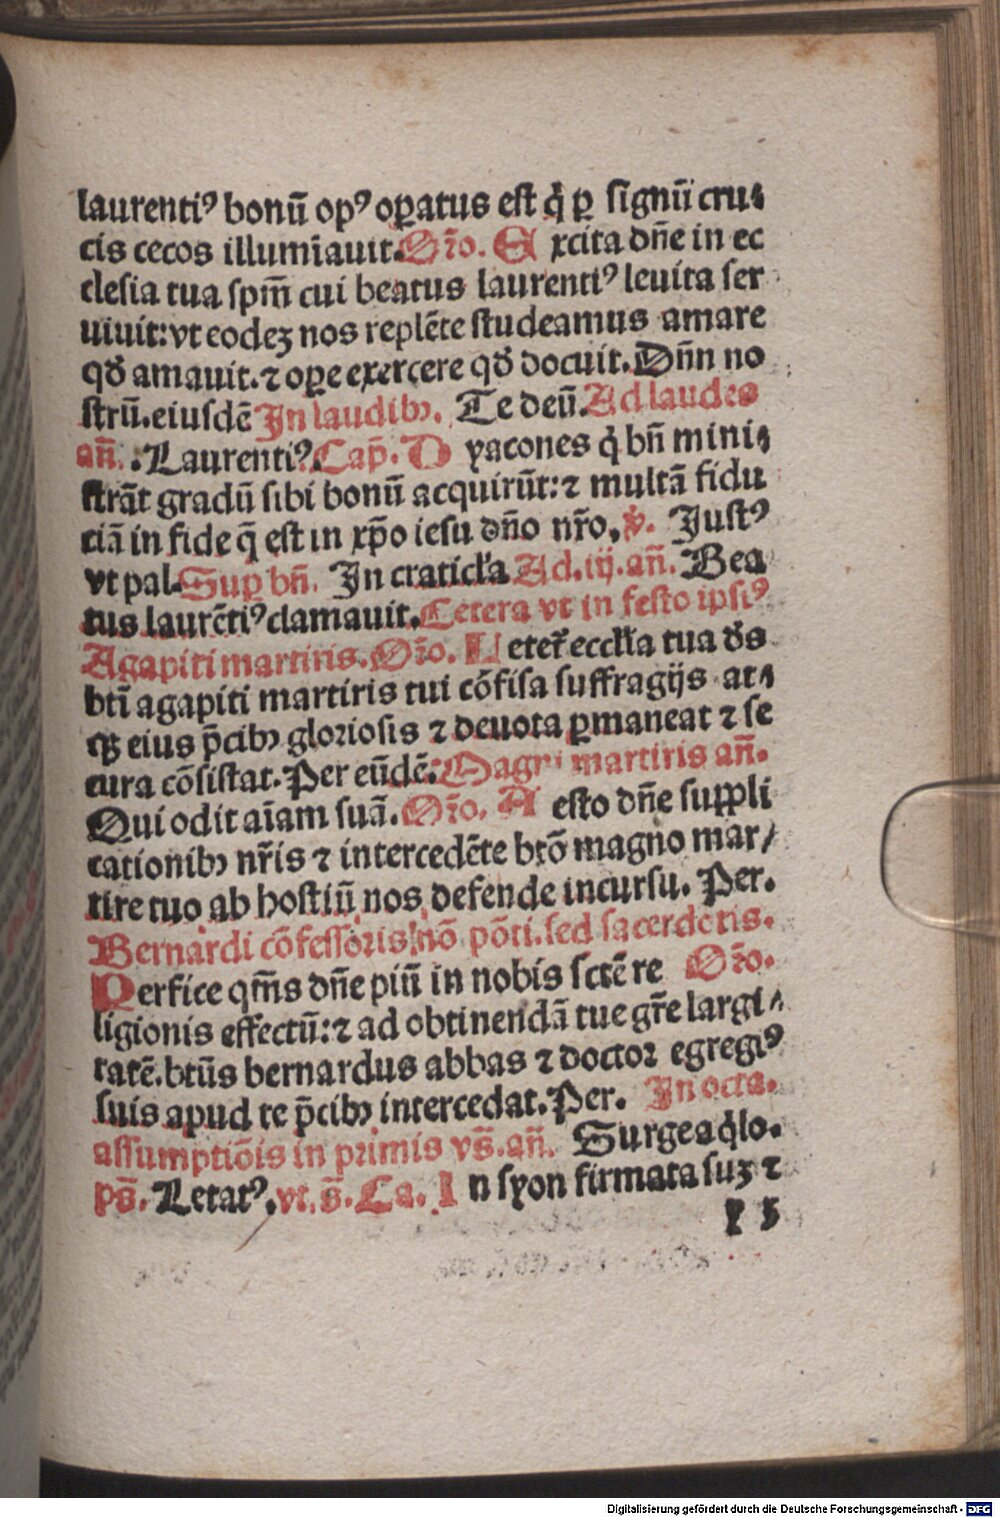 laurentiꝰ bonū opꝰ oꝑatus est q̇ ꝑ signū cru⸗
cis cecos illumīauit. Or̄o. Excita dn̄e in ec
clesia tua spm̄ cui beatus laurentiꝰ leuita ser
uiuit: vt eodeꝫ nos replēte studeamus amare
qd̄ amauit. ⁊ oꝑe exercere qd̄ docuit. Dn̄n no
strū. eiusdē In laudibꝰ. Te deū. Ad laudes
an̄. Laurentiꝰ. Cap̄. Dyacones q̇ bn̄ mini⸗
strāt gradū sibi bonū acquirūt: ⁊ multā fidu
ciā in fide q̄ est in xp̄o iesu dn̄o nr̄o, ℣. Justꝰ
vt pal. Suꝑ bn̄. In craticl'a Ad. iij. an̄. Bea
tus laurētiꝰ clamauit. Cetera vt in festo ipsiꝰ
Agapiti martiris. Or̄o. Letet᷑ eccl'ia tua ds̄
bti̅ agapiti martiris tui cōfisa suffragijs at⸗
qꝫ eius p̄cibꝰ gloriosis ⁊ deuota ꝑmaneat ⁊ se
cura cōsistat. Per eūdē. Magni martiris an̄.
Qui odit aīam suā. Or̄o. Adesto dn̄e suppli
cationibꝰ nr̄is ⁊ intercedēte btō magno mar/
tire tuo ab hostiū nos defende incursu. Per.
Bernardi cōfessoris nō pōti. sed sacerdotis.
Perfice qm̄s dn̄e piū in nobis sctē re Or̄o.
ligionis effectū: ⁊ ad obtinendā tue gr̄e largi⸗
tatē. btūs bernardus abbas ⁊ doctor egregiꝰ
suis apud te p̄cibꝰ intercedat. Per. In octa.
assumptiōis in primis vs̄. an̄. Surge aq̇lo.
ps̄. Letatꝰ. vt. s̄. Ca. In syon firmata suꝫ ⁊
y 5
Digitalisierung gefördert durch die Deutsche Forschungsgemeinschaft - DFG